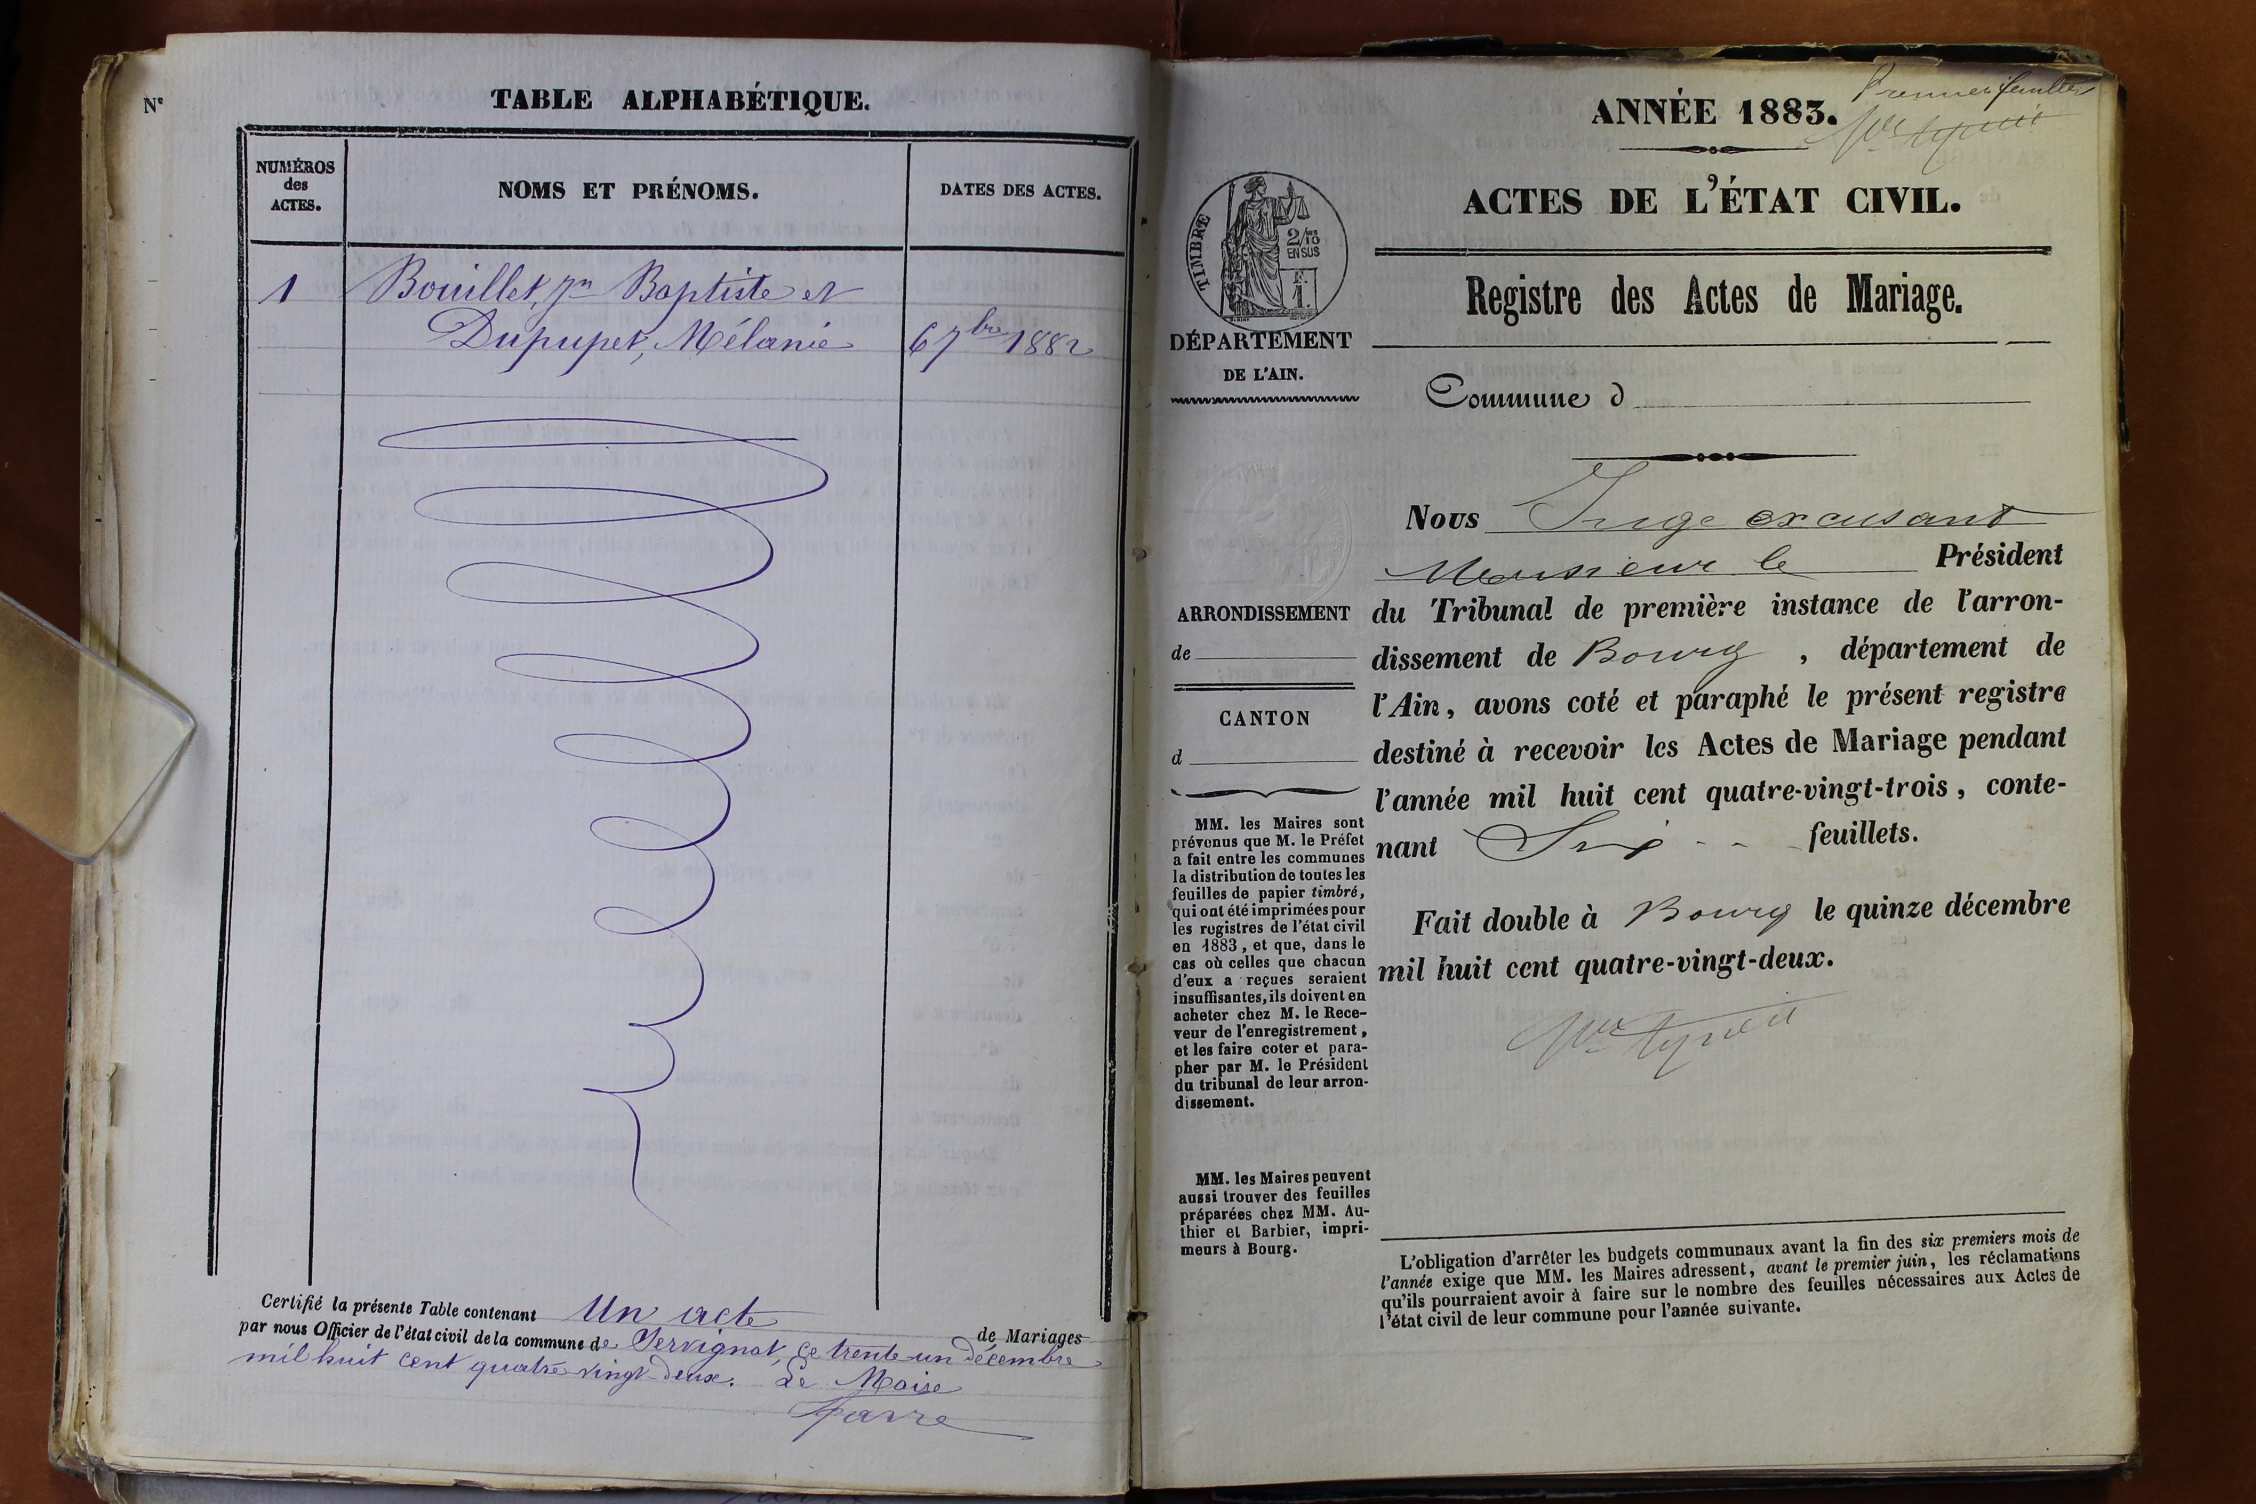 Nº
TABLE ALPHABÉTIQUE.
NUMÉROS
des
ACTES.
NOMS ET PRÉNOMS.
DATES DES ACTES.
1 Bouillet, Jn Baptiste et
Dupupet, Mélanie 6 7bre 1882
Certifié la présente Table contenant Un acte
de Mariages
par nous Officier de l'état civil de la commune de Servignat, ce trente-un décembre
mil huit cent quatre vingt-deux. Le Maire
Favre
Premier feuillet
ANNÉE 1883.
ACTES DE L'ÉTAT CIVIL.
TIMBRE
2/10
EN SUS
F.
1.
Registre des Actes de Mariage.
DÉPARTEMENT
DE L'AIN.
Commune d
Nous Juge excusant
Monsieur le Président
du Tribunal de première instance de l'arron-
dissement de Bourg, département de
l'Ain, avons coté et paraphé le présent registre
destiné à recevoir les Actes de Mariage pendant
l'année mil huit cent quatre-vingt-trois, conte-
nant Six feuillets.
Fait double à Bourg le quinze décembre
mil huit cent quatre-vingt-deux.
ARRONDISSEMENT
de
CANTON
d
MM. les Maires sont
prévenus que M. le Préfet
a fait entre les communes
la distribution de toutes les
feuilles de papier timbré,
qui ont été imprimées pour
les registres de l'état civil
en 1883, et que, dans le
cas où celles que chacun
d'eux a reçues seraient
insuffisantes, ils doivent en
acheter chez M. le Rece-
veur de l'enregistrement,
et les faire coter et para-
pher par M. le Président
du tribunal de leur arron-
dissement.
MM. les Maires peuvent
aussi trouver des feuilles
préparées chez MM. Au-
thier et Barbier, impri-
meurs à Bourg.
L'obligation d'arrêter les budgets communaux avant la fin des six premiers mois de
l'année exige que MM. les Maires adressent, avant le premier juin, les réclamations
qu'ils pourraient avoir à faire sur le nombre des feuilles nécessaires aux Actes de
l'état civil de leur commune pour l'année suivante.